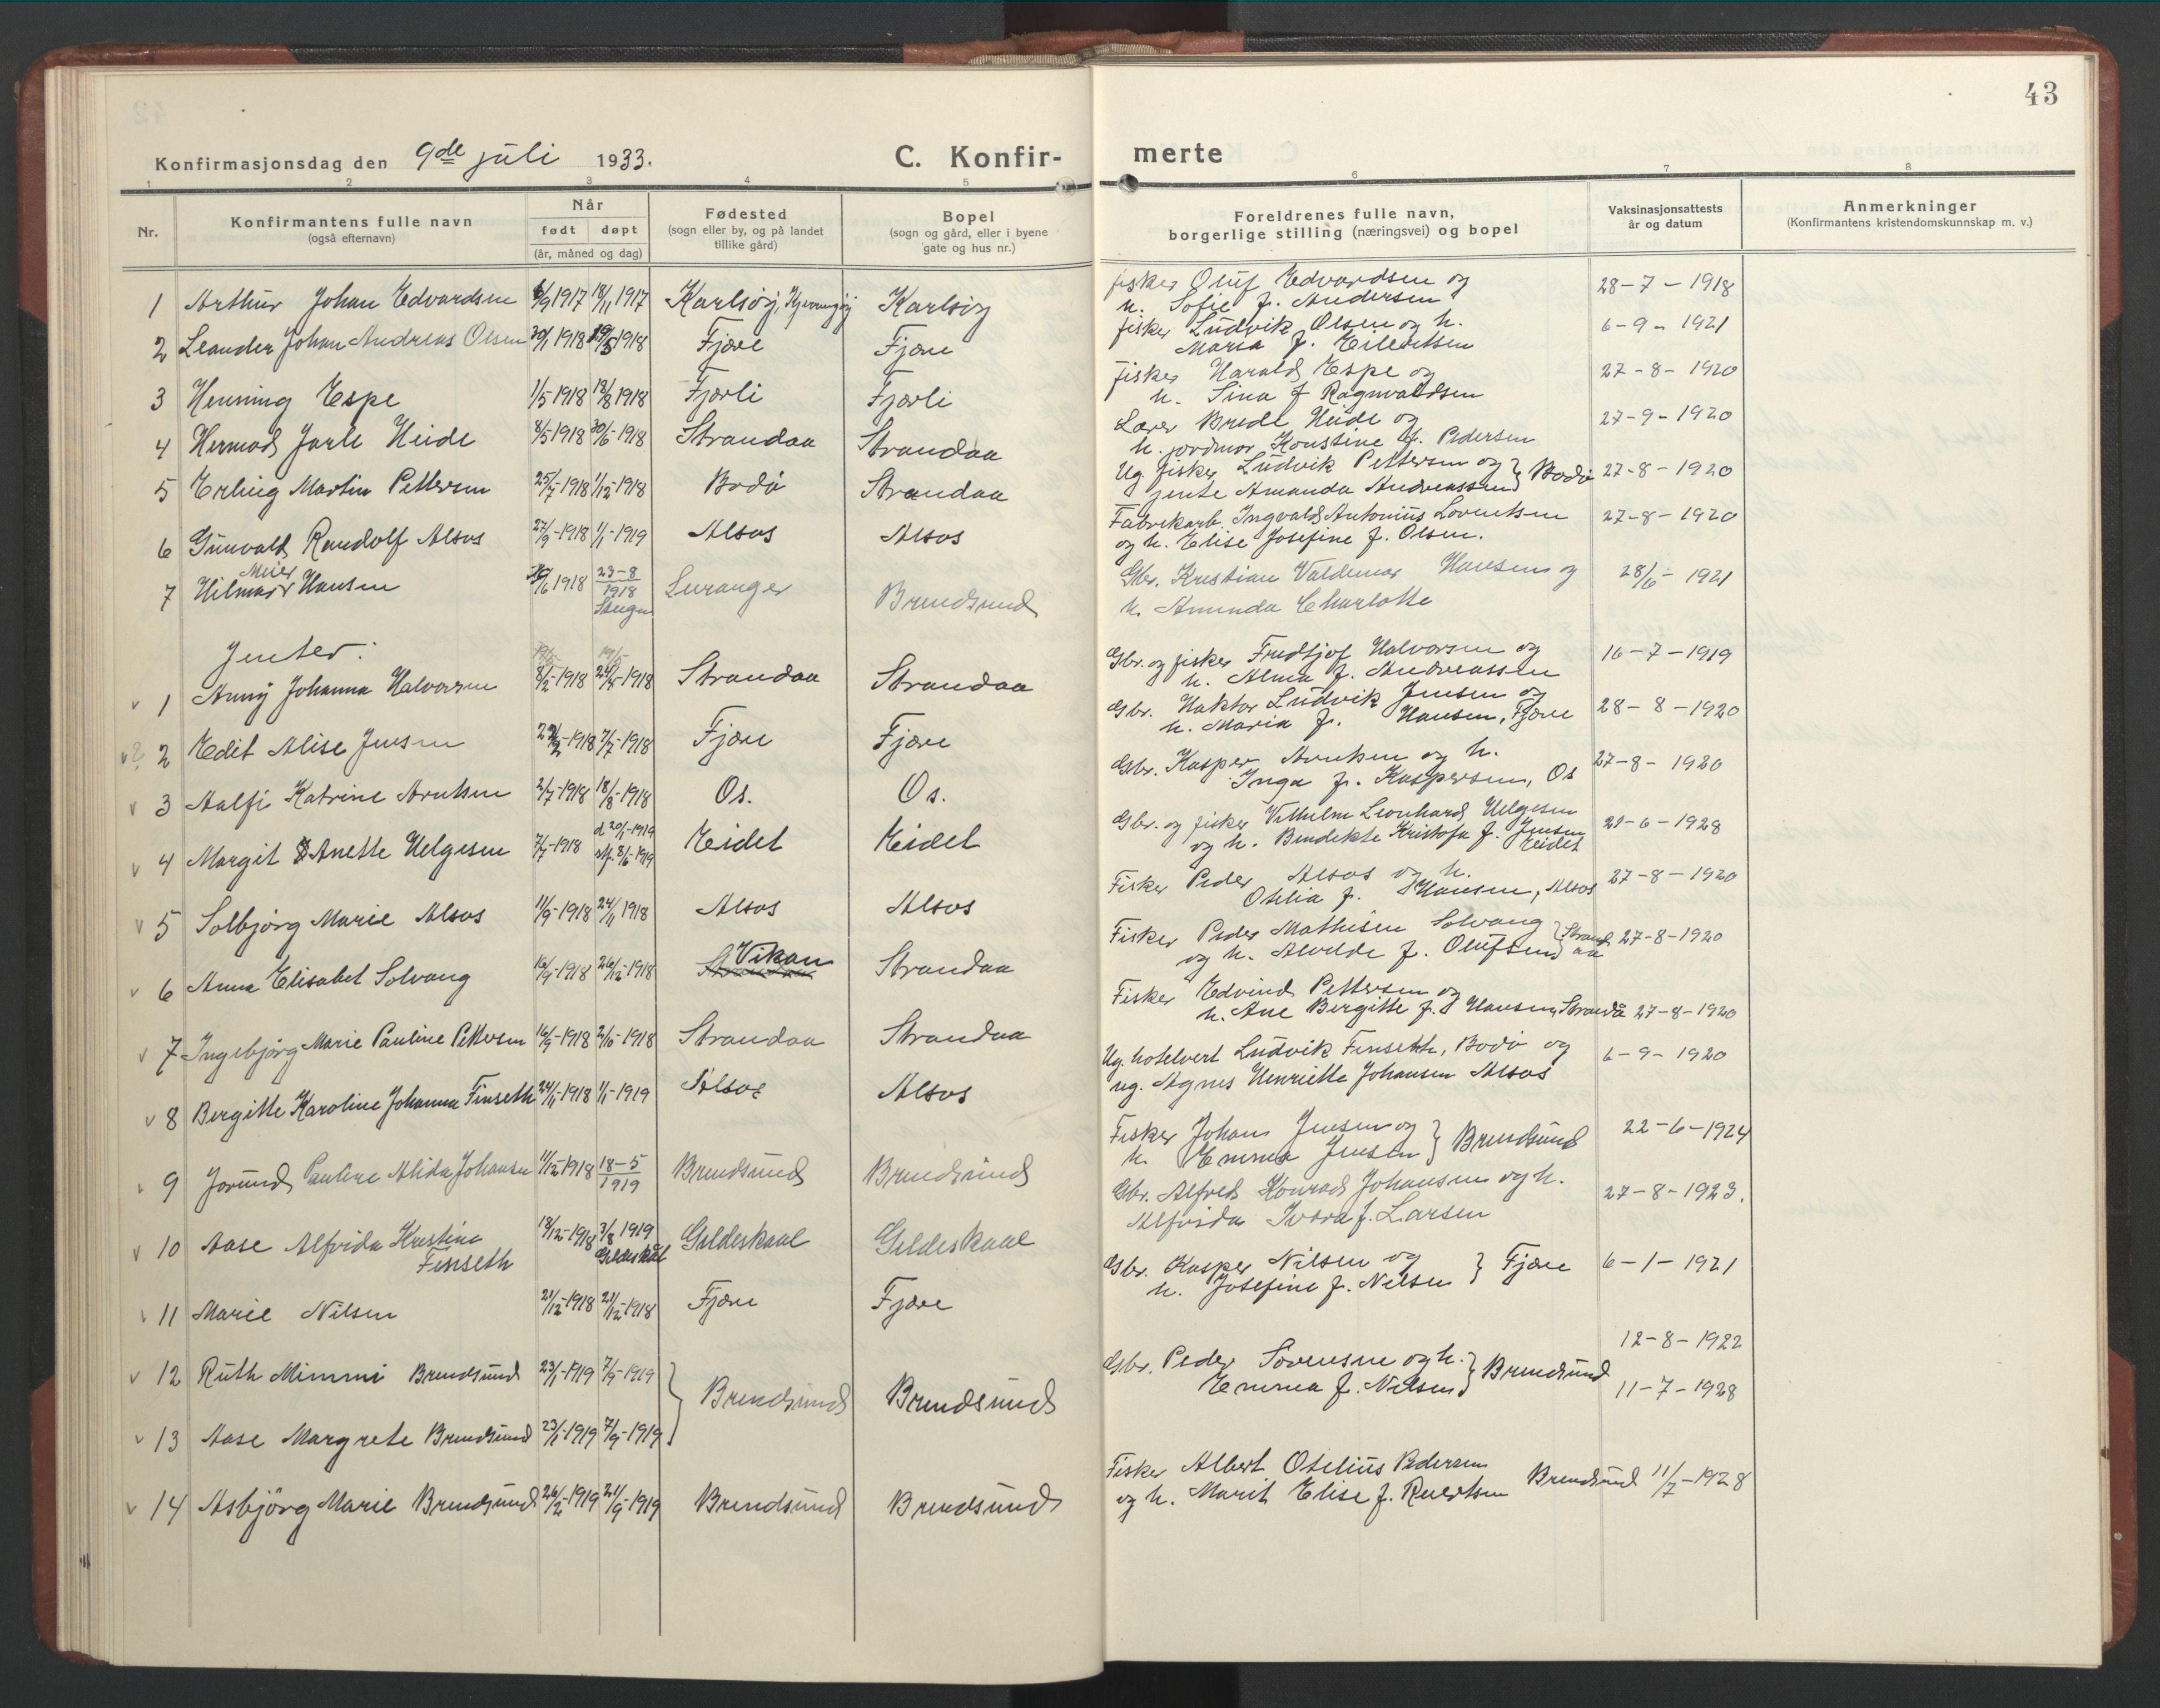 43
Konfirmasjonsdag den 9de juli 1933. C. Konfirmerte
1 2 3 4 5 6 7 8
Nr. Konfirmantens fulle navn (også efternavn) Når født døpt (år, måned og dag) Fødested (sogn eller by, og på landet tillike gård) Bopel (sogn og gård, eller i byene gate og hus nr.) Foreldrenes fulle navn, borgerlige stilling (næringsvei) og bopel Vaksinasjonsattests år og datum Anmerkninger (Konfirmantens kristendomskunnskap m. v.)
1 Arthur Johan Edvardsen 6/9 1917 18/11 1917 Karlsöy, Kjerringöy Karlsöy fisker Oluf Edvardsen og
h. Sofie f. Andersen 28-7-1918
2 Leander Johan Andreas Olsen 30/1 1918 19/5 1918 Fjære Fjære fisker Ludvik Olsen og h.
Maria f. Eilertsen 6-9-1921
3 Henning Espe 1/5-1918 18/8 1918 Fjærli Fjærli fisker Harald Espe og
h. Sina f Ragnvaldsen 27-8-1920
4 Hermod Jarle Heide 8/5-1918 30/6-1918 Strandaa Strandaa Lærer Brede Heide og
h. jordmor Konstine f. Pedersen 27-9-1920
5 Erling Martin Pettersen 25/7-1918 1/12-1918 Bodö Strandaa Ug. fisker Ludvik Pettersen og
jente Amanda Andreassen } Bodö 27-8-1920
6 Gunvald Randolf Alsos 27/9-1918 1/1-1919 Alsos Alsos Fabrikarb. Ingvald Antonius Lorentsen
og h. Elise Josefine f. Olsen. 27-8-1920
7 Hilmar Meier Hansen /6 1918 23-8 1918 Leranger Brendsund Gbr. Kristian Valdemar Hansen og
h. Amanda Charlotte 28/6-1921
Jenter:
1 Anny Johanna Halvorsen 8/2-1918 /4-1918 Strandaa Strandaa Gbr. og fisker Fridtjof Halvorsen og
h. Alma f. Andreassen 16-7-1919
2 Edit Alise Jensen /2-1918 7/7-1918 Fjære Fjære Gbr. Haktor Ludvik Jensen og
h. Maria f. Hansen, Fjære 28-8-1920
3 Aalfi Katrine Arntsen 2/7-1918 18/8-1918 Os. Os. Gbr. Kasper Arntsen og h.
Inga f. Kaspersen, Os 27-8-1920
4 Margit Anette Helgesen 7/7-1918 d 20/1-1919 stf. 8/6-1919 Eidet Eidet Gbr. og fisker Vilhelm Leonhard Helgesen
og h. Bendikte Kristofa f. Jensen Eidet 21-6-1928
5 Solbjörg Marie Alsos 11/9-1918 24/11 1918 Alsos Alsos Fisker Peder Alsos og h.
Otelia f. Hansen, Alsos 27-8-1920
6 Anna Elisabet Solvang 16/9-1918 26/12-1918 Vikan Strandaa Fisker Peder Mathisen Solvang
og h. Alvilde f. Olufsen } Strandaa 27-8-1920
7 Ingebjörg Marie Pauline Pettersen 16/9-1918 2/10-1918 Strandaa Strandaa Fisker Edvind Pettersen og
h. Ane Bergitte f. Hansen, Strandå 27-8-1920
8 Bergitte Karoline Johanna Finseth 24/11-1918 1/1-1919 Alsos Alsos Ug. hotelvert Ludvik Finseth, Bodö og
ug. Agnes Henriette Johansen Alsos 6-9-1920
9 Jorund Pauline Alida Johansen 11/12-1918 18-5 1919 Brendsund Brendsund Fisker Johan Jensen og
h. Emma Jensen } Brendsund 22-6-1924
10 Aase Alfrida Kristine
Finseth 18/12-1918 3/8 1919 Gildeskål Gildeskaal Gildeskaal Gbr. Alfred Konrad Johansen og h.
Alfrida Ivora f. Larsen 27-8-1923.
11 Marie Nilsen 21/12-1918 21/12-1918 Fjære Fjære Gbr. Kasper Nilsen og
h. Josefine f. Nilsen } Fjære 6-1-1921
12 Ruth Mimmi Brendsund 23/1-1919 7/9-1919 } Brendsund Brendsund Gbr. Peder Sörensen og h.
Emma f. Nilsen } Brendsund 12-8-1922
13 Aase Margrete Brendsund 23/1-1919 7/9-1919 11-7-1928
14 Asbjörg Marie Brendsund 26/2-1919 21/9-1919 Brendsund Brendsund Fisker Albert Otelius Pedersen
og h. Marit Elise f. Brendsund 11/7-1928